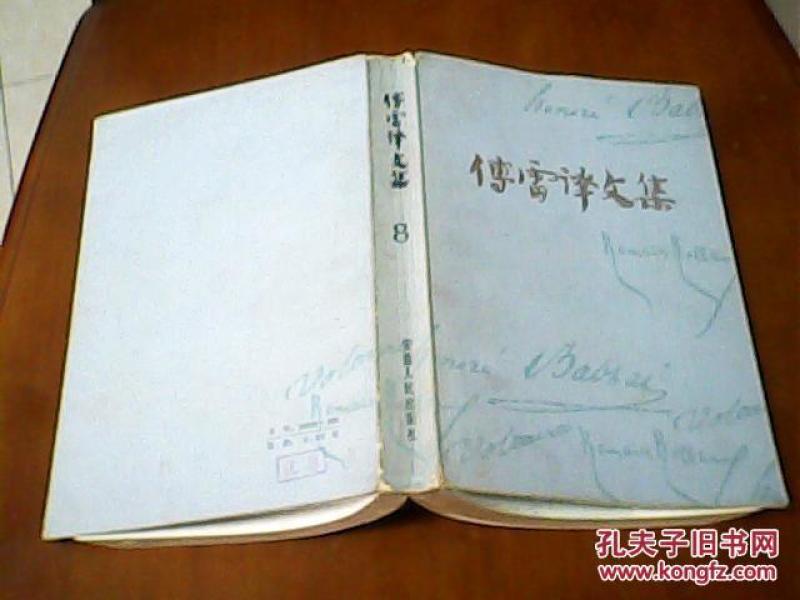 傅雷译文集
8
安徽人民出版社
傅雷译文集
Honoré de Balzac
Romain Rolland
Voltaire
Honoré de Balzac
Romain Rolland
Voltaire
Voltaire
Romain Rolland
孔夫子旧书网
www.kongfz.com